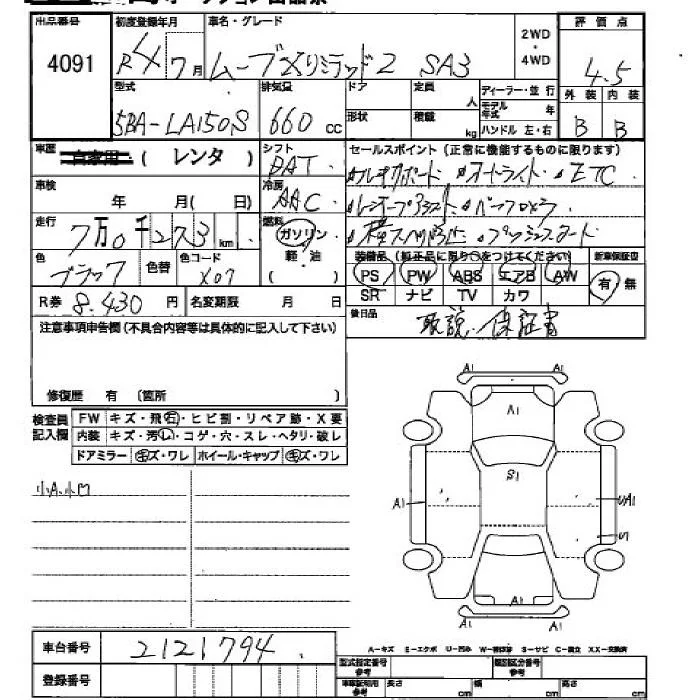 出品番号 初度登録年月 車名・グレード 評価点
4091 R4 7月 ムーブXリミテッド2 SA3 2WD・4WD 4.5
型式 排気量 ドア 定員 人 ディーラー・並行 外装 内装
5BA-LA150S 660cc 形状 積載 kg モデル年式 年 ハンドル 左・右 B B
車歴 自家用・(レンタ) シフト DAT セールスポイント(正常に機能するものに限ります)
車検 年 月( 日) 冷房 AAC オートライト ETC
走行 7万0千273km 燃料 ガソリン・軽・油 ( )
装備品(純正品に限り○をつけてください) 新車保証書
色 ブラック 色替 色コード X07 PS PW ABS エアB AW 有・無
SR ナビ TV カワ
R券 8.430円 名変期限 月 日 後日品 取説・保証書
注意事項申告欄(不具合内容等は具体的に記入して下さい)
修復歴 有 (箇所 )
検査員記入欄 FW キズ・飛石・ヒビ割・リペア跡・X要
内装 キズ・汚レ・コゲ・穴・スレ・ヘタリ・破レ
ドアミラー キズ・ワレ ホイール・キャップ キズ・ワレ
小A.小凹
A1
A1
S1
A1 UA1
A1
A1
車台番号 2121794
A-キズ E-エクボ U-凹み S-サビ C-腐立
登録番号 型式指定番号 参考 類別区分番号 参考
長さ cm 幅 cm 高さ cm